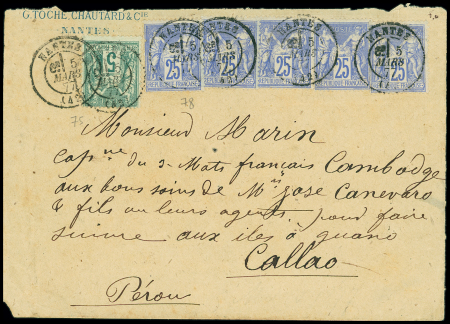 G. TOCHÉ, CHAUTARD & Cie
NANTES
NANTES 5 MARS 77
5
25 25 25 25 25
75
78
Monsieur Marin
Capne du 3 Mats français Cambodge
aux bons soins de Mrs José Canevaro
& fils ou leurs agents pour faire
suivre aux iles à guano
Callao
Pérou